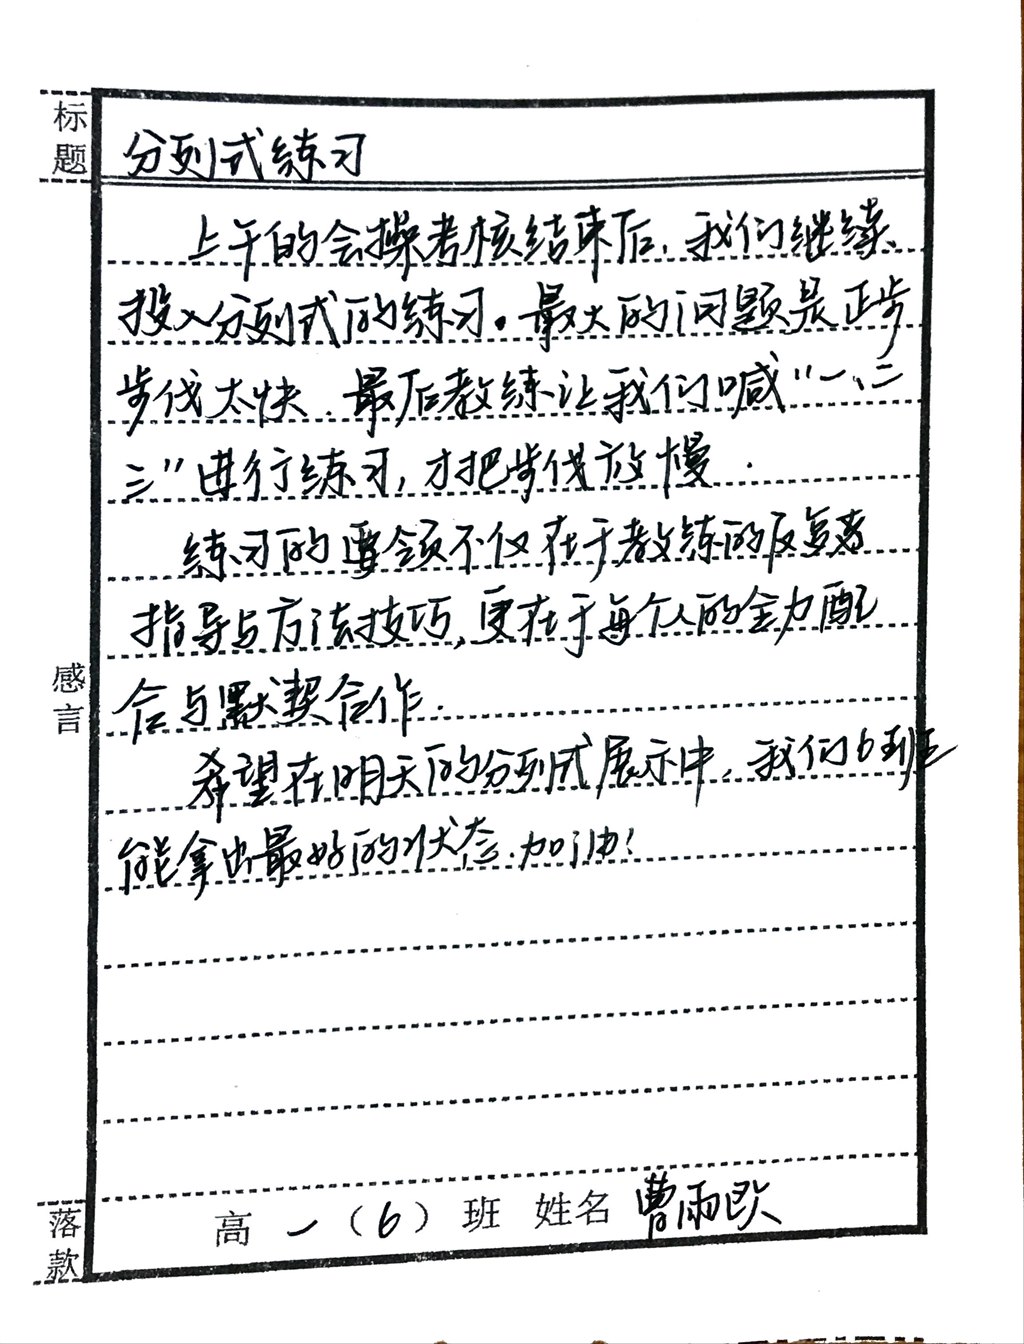 标题
分列式练习
上午的会操考核结束后，我们继续
投入分列式的练习。最大的问题是正步
步伐太快．最后教练让我们喊“一、二
三”进行练习，才把步伐放慢．
练习的要领不仅在于教练的反复
指导与方法技巧，更在于每个人的全力配
合与默契合作．
感言
希望在明天的分列式展示中，我们6班
能拿出最好的状态．加油！
落款
高一（6）班 姓名 曹雨欧